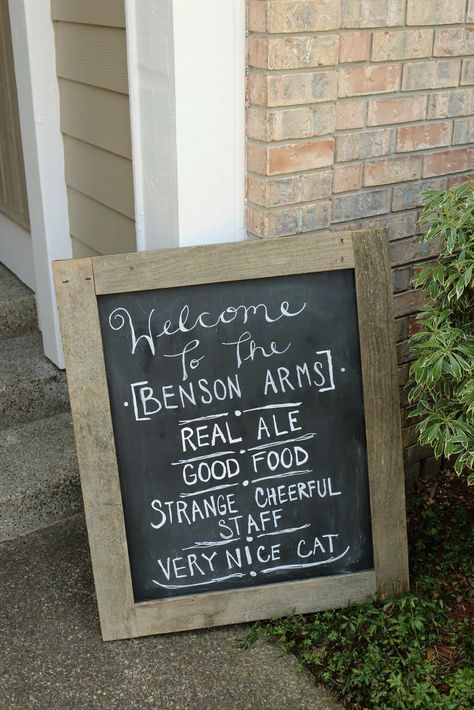 Welcome
To The
[BENSON ARMS]
REAL ALE
GOOD FOOD
STRANGE CHEERFUL
STAFF
VERY NICE CAT